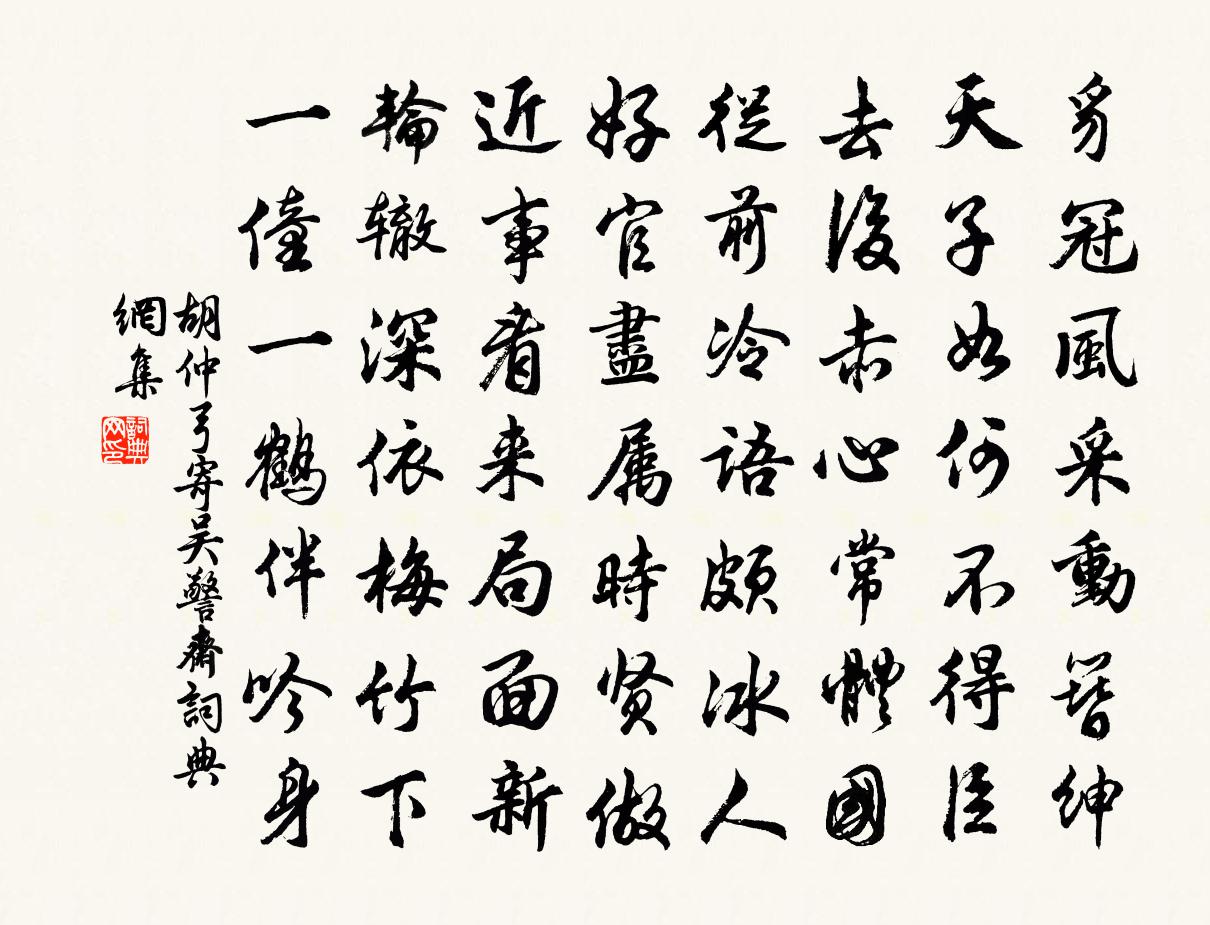 豸冠風采動簪紳
天子如何不得臣
去後赤心常體國
從前冷語頗冰人
好官盡属時贤做
近事看来局面新
輪辙深依梅竹下
一僮一鶴伴吟身
胡仲弓寄吴警齋詞典
網集
詞典
网印